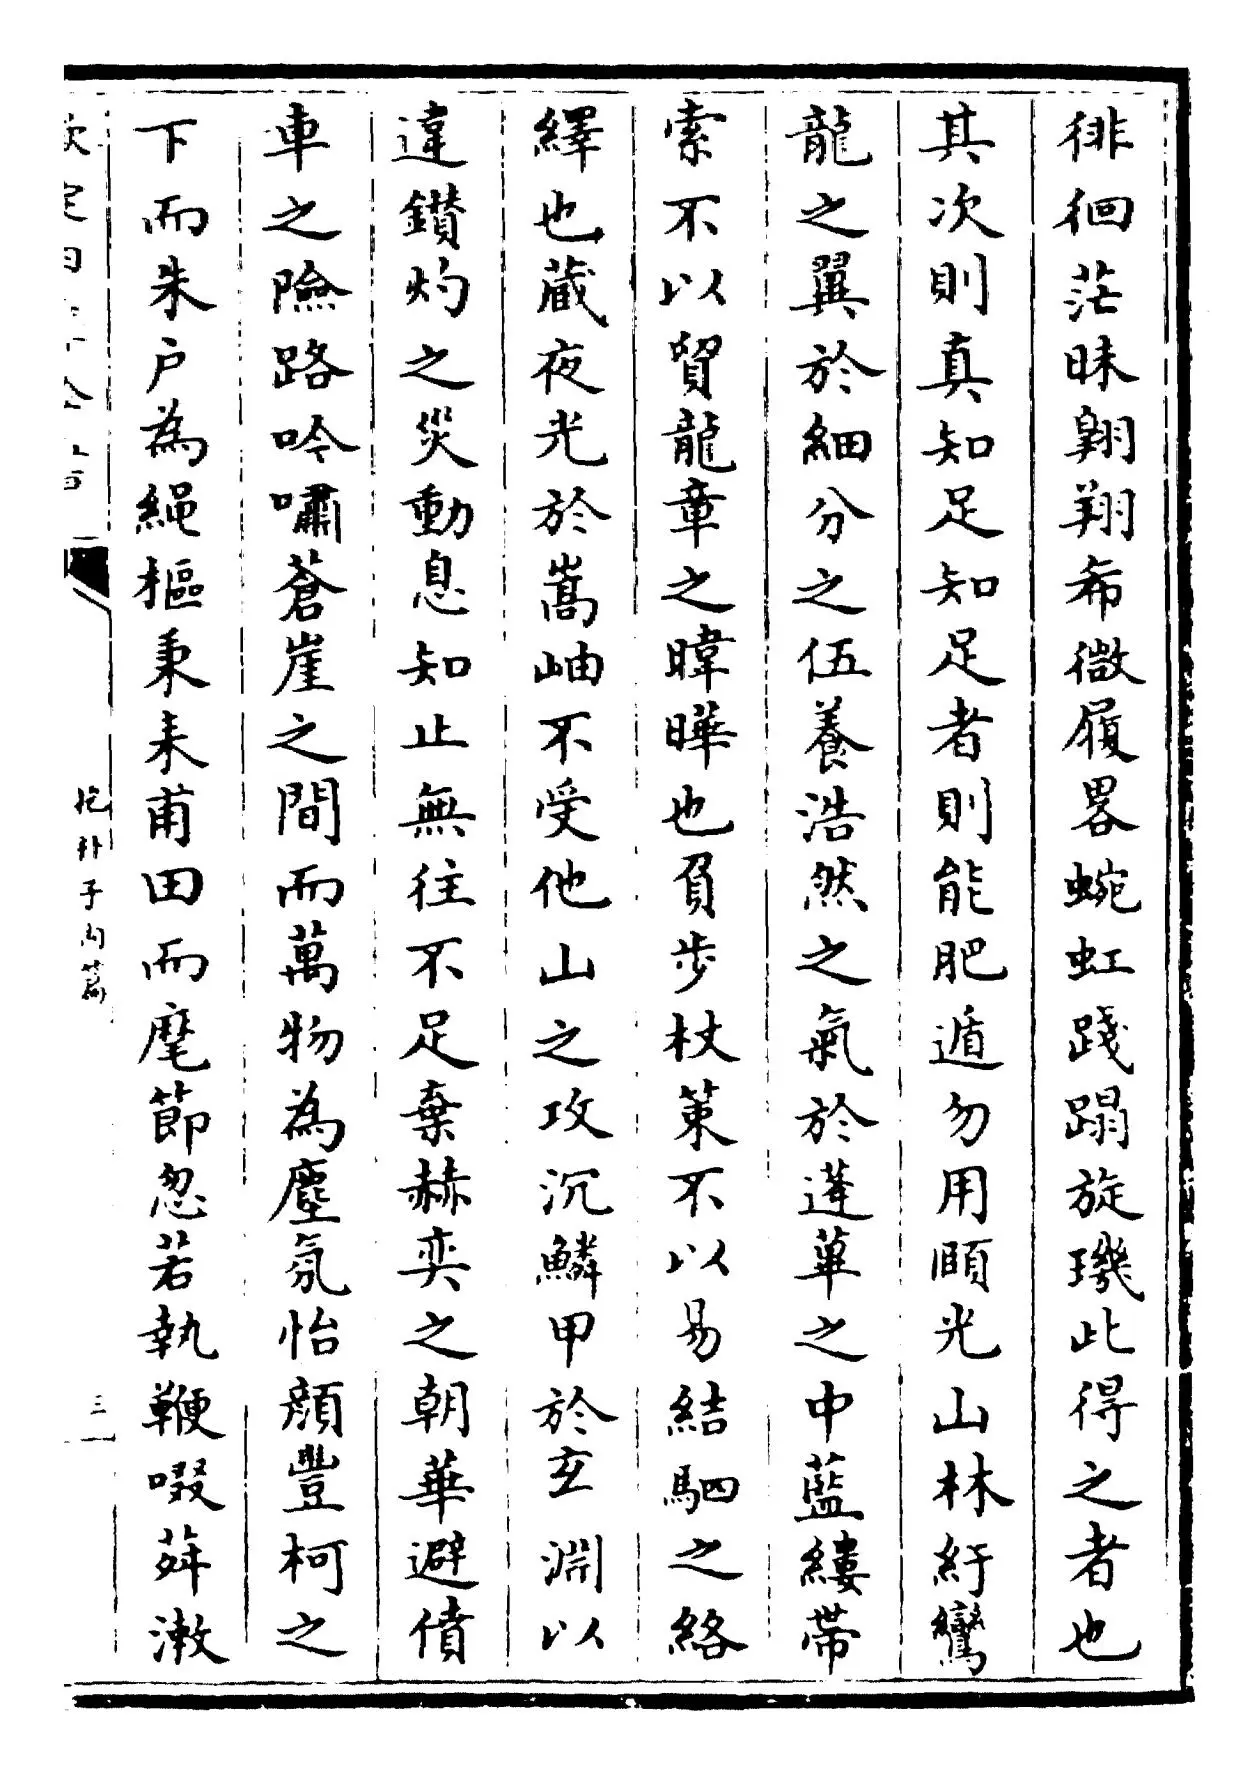 徘徊茫昧翺翔希微履畧蜿虹踐蹋旋璣此得之者也
其次則真知足知足者則能肥遁勿用頤光山林紆鸞
龍之翼於細分之伍養浩然之氣於蓬蓽之中藍縷帶
索不以貿龍章之暐曄也負步杖策不以易結駟之絡
繹也蔵夜光於嵩岫不受他山之攻沉鱗甲於玄淵以
違鑚灼之災動息知止無往不足棄赫奕之朝華避僨
車之險路吟嘯蒼崖之間而萬物為塵氛怡顔豐柯之
下而朱户為繩樞秉耒甫田而麾節忽若執鞭啜荈漱
欽定四庫全書
抱朴子内篇
三